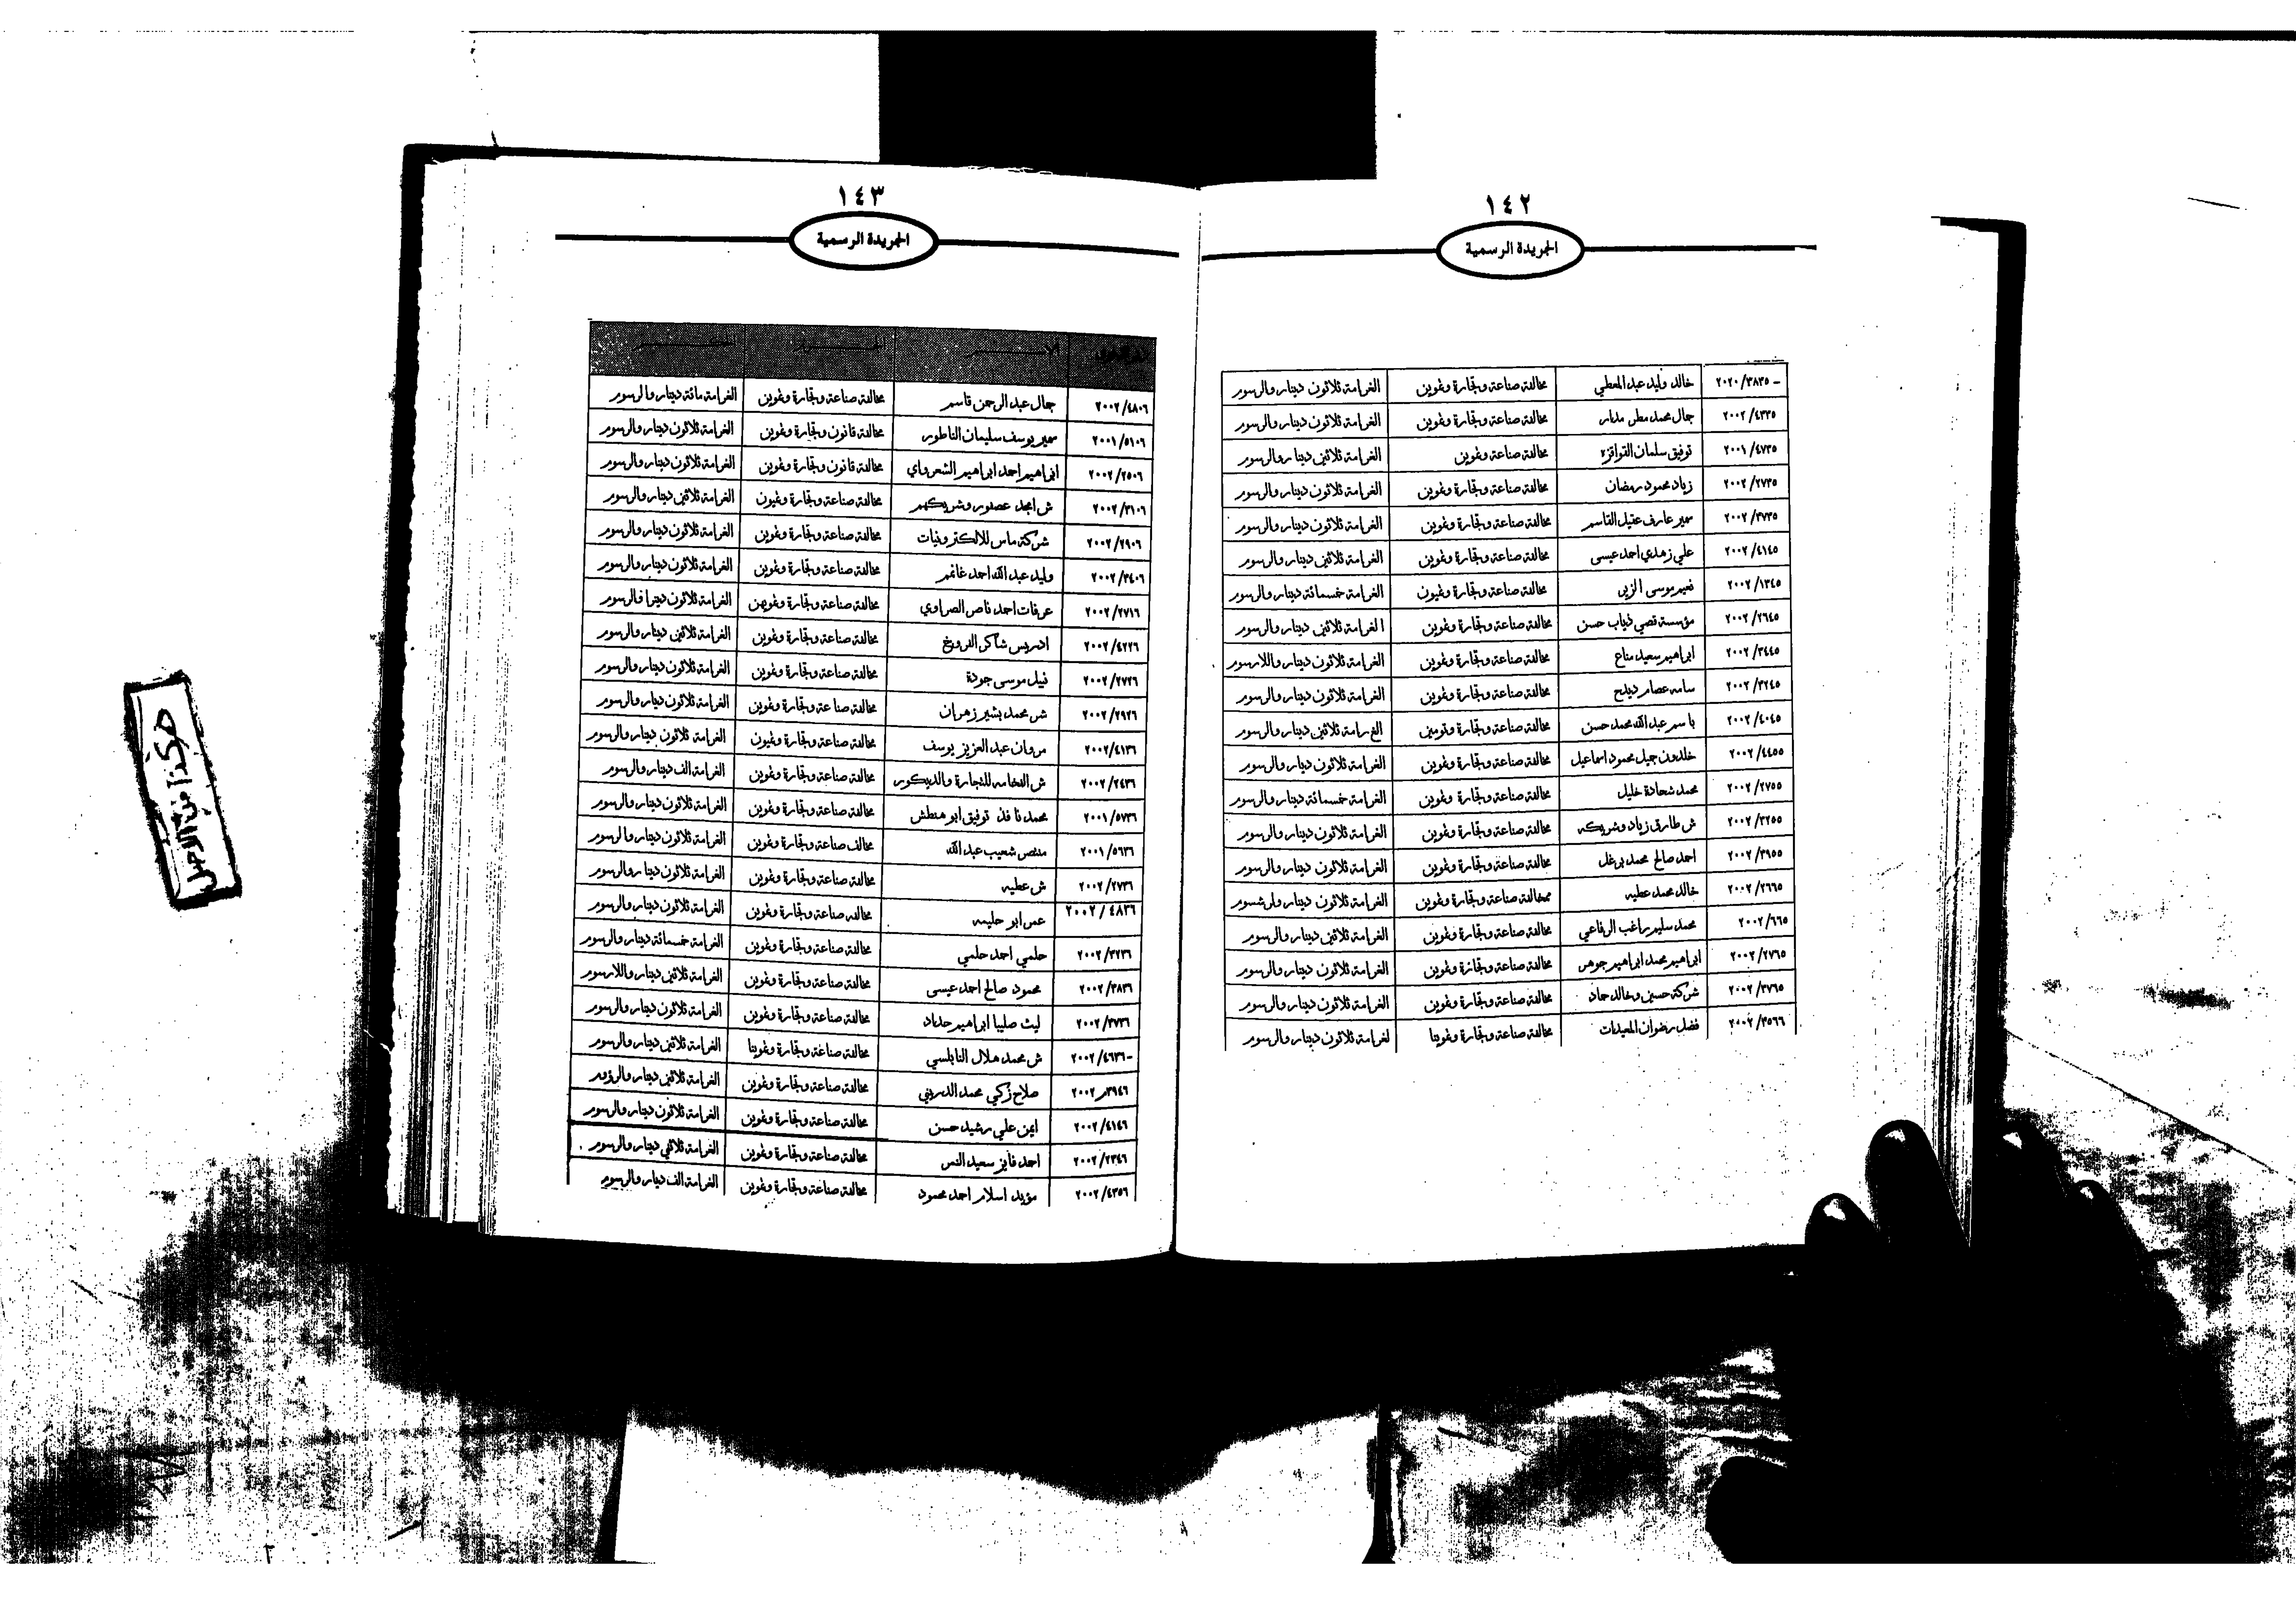 ١٤٢
الجريدة الرسمية
٢٠٢٠/٣٨٣٥ - خالد وليد عبد المعطي مخالفة صناعة وتجارة وتموين الغرامة ثلاثون دينار والرسوم
٢٠٠٢/٤٣٣٥ جمال محمد مطر مدار مخالفة صناعة وتجارة وتموين الغرامة ثلاثون دينار والرسوم
٢٠٠١/٤٧٣٥ توفيق سلمان القواقزه مخالفة صناعة وتموين الغرامة ثلاثين دينار والرسوم
٢٠٠٢/٢٧٣٥ زياد محمود رمضان مخالفة صناعة وتجارة وتموين الغرامة ثلاثون دينار والرسوم
٢٠٠٢/٣٧٣٥ سمير عارف عقيل القاسم مخالفة صناعة وتجارة وتموين الغرامة ثلاثون دينار والرسوم
٢٠٠٢/٤١٤٥ علي زهدي احمد عيسى مخالفة صناعة وتجارة وتموين الغرامة ثلاثين دينار والرسوم
٢٠٠٢/١٣٤٥ نعيم موسى الزبن مخالفة صناعة وتجارة وتميون الغرامة خمسمائة دينار والرسوم
٢٠٠٢/٢٦٤٥ مؤسسة قصي ذياب حسن مخالفة صناعة وتجارة وتموين الغرامة ثلاثين دينار والرسوم
٢٠٠٢/٣٤٤٥ ابراهيم سعيد مناع مخالفة صناعة وتجارة وتموين الغرامة ثلاثون دينار واللارسوم
٢٠٠٢/٣٢٤٥ سامه عصام ديلح مخالفة صناعة وتجارة وتموين الغرامة ثلاثون دينار والرسوم
٢٠٠٢/٤٠٤٥ باسم عبد الله محمد حسن مخالفة صناعة وتجارة وتومين الغرامة ثلاثين دينار والرسوم
٢٠٠٢/٤٤٥٥ خلدون جميل محمود اسماعيل مخالفة صناعة وتجارة وتموين الغرامة ثلاثون دينار والرسوم
٢٠٠٢/٢٧٥٥ محمد شحادة خليل مخالفة صناعة وتجارة وتموين الغرامة خمسمائة دينار والرسوم
٢٠٠٢/٣٢٥٥ ش طارق زياد وشريكه مخالفة صناعة وتجارة وتموين الغرامة ثلاثون دينار والرسوم
٢٠٠٢/٣٩٥٥ احمد صالح محمد برغل مخالفة صناعة وتجارة وتموين الغرامة ثلاثون دينار والرسوم
٢٠٠٢/٢٦٦٥ خالد محمد عطيه ممخالفة صناعة وتجارة وتموين الغرامة ثلاثون دينار
٢٠٠٢/٦٦٥ محمد سليم راغب الرفاعي مخالفة صناعة وتجارة وتموين الغرامة ثلاثين دينار والرسوم
٢٠٠٢/٢٧٦٥ ابراهيم محمد ابراهيم جوهر مخالفة صناعة وتجارة وتموين الغرامة ثلاثون دينار والرسوم
٢٠٠٢/٣٧٦٥ شركة حسين وخالد حماد مخالفة صناعة وتجارة وتموين الغرامة ثلاثون دينار والرسوم
٢٠٠٢/٣٥٦٦ فضل رضوان العبيدات مخالفة صناعة وتجارة وتموينا لغرامة ثلاثون دينار والرسوم
١٤٣
الجريدة الرسمية
٢٠٠٢/٤٨٠٦ جمال عبد الرحمن قاسم مخالفة صناعة وتجارة وتموين الغرامة مائة دينار والرسوم
٢٠٠١/٥١٠٦ سمير يوسف سليمان الناطور مخالفة قانون وتجارة وتموين الغرامة ثلاثون دينار والرسوم
٢٠٠٢/٢٥٠٦ ابراهيم احمد ابراهيم الشعرواي مخالفة قانون وتجارة وتموين الغرامة ثلاثون دينار والرسوم
٢٠٠٢/٣١٠٦ ش امجد عصفور وشريكهم مخالفة صناعة وتجارة وتميون الغرامة ثلاثين دينار والرسوم
٢٠٠٢/٢٩٠٦ شركة ماس للالكترونيات مخالفة صناعة وتجارة وتموين الغرامة ثلاثون دينار والرسوم
٢٠٠٢/٣٤٠٦ وليد عبد الله احمد غانم مخالفة صناعة وتجارة وتموين الغرامة ثلاثون دينار والرسوم
٢٠٠٢/٢٧١٦ عرفات احمد ناصر الصراوي مخالفة صناعة وتجارة وتموين الغرامة ثلاثون
٢٠٠٢/٤٢٢٦ ادريس شاكر الفروخ مخالفة صناعة وتجارة وتموين الغرامة ثلاثين دينار والرسوم
٢٠٠٢/٢٧٢٦ نبيل موسى جودة مخالفة صناعة وتجارة وتموين الغرامة ثلاثون دينار والرسوم
٢٠٠٢/٢٩٢٦ ش محمد بشير زهران مخالفة صناعة وتجارة وتموين الغرامة ثلاثون دينار والرسوم
٢٠٠٢/٤١٣٦ مروان عبد العزيز يوسف مخالفة صناعة وتجارة وتميون الغرامة ثلاثون دينار والرسوم
٢٠٠٢/٢٤٣٦ ش الفخامه للنجارة والديكور مخالفة صناعة وتجارة وتموين الغرامة الف دينار والرسوم
٢٠٠١/٥٧٣٦ محمد نافذ توفيق ابو منطش مخالفة صناعة وتجارة وتموين الغرامة ثلاثون دينار والرسوم
٢٠٠١/٥٦٣٦ منتصر شعيب عبد الله مخالف صناعة وتجارة وتموين الغرامة ثلاثون دينار والرسوم
٢٠٠٢/٢٧٣٦ ش عطيه مخالفة صناعة وتجارة وتموين الغرامة ثلاثون دينار والرسوم
٢٠٠٢/٤٨٣٦ عمر ابو حليمه مخالفه صناعة وتجارة وتموين الغرامة ثلاثون دينار والرسوم
٢٠٠٢/٣٢٣٦ حلمي احمد حلمي مخالفة صناعة وتجارة وتموين الغرامة خمسمائة دينار والرسوم
٢٠٠٢/٣٨٣٦ محمود صالح احمد عيسى مخالفة صناعة وتجارة وتموين الغرامة ثلاثين دينار واللارسوم
٢٠٠٢/٣٧٣٦ ليث صليبا ابراهيم حداد مخالفة صناعة وتجارة وتموين الغرامة ثلاثون دينار والرسوم
٢٠٠٢/٤٦٣٦- ش محمد هلال النابلسي مخالفة صناعة وتجارة وتموينا الغرامة ثلاثين دينار والرسوم
٣٩٤٦ر٢٠٠٢ صلاح زكي محمد الدريني مخالفة صناعة وتجارة وتموين الغرامة ثلاثين دينار
٢٠٠٢/٤١٤٦ ايمن علي رشيد حسن مخالفة صناعة وتجارة وتموين الغرامة ثلاثون دينار والرسوم
٢٠٠٢/٢٣٤٦ احمد فايز سعيد النس مخالفة صناعة وتجارة وتموين الغرامة ثلاثين دينار والرسوم
٢٠٠٢/٤٣٥٦ مؤيد اسلام احمد محمود مخالفة صناعة وتجارة وتموين الغرامة الف دينار والرسوم
هكذا من الاصل